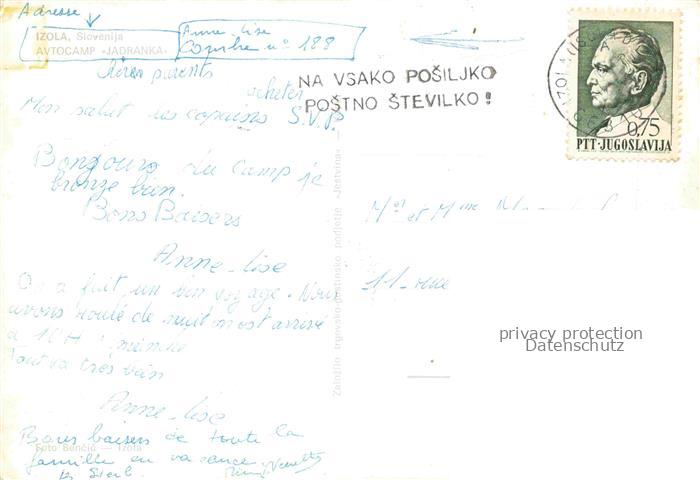 Adresse
IZOLA, Slovenija
AVTOCAMP «JADRANKA»
Anne-lise
n° 188
Chers parents
acheter
Mon salut les copains S.V.P.
Bonjours du camp je
bronze bien.
Bons Baisers
Anne-lise
On a fait un bien voyage. Nous
avons roulé de nuit on est arrivé
a 10H
Tout va tres bien
Anne-lise
Bons baisers de toute la
famille en vacance
Foto Benčič — Izola
NA VSAKO POŠILJKO
POŠTNO ŠTEVILKO!
IZOLA
0,75
PTT-JUGOSLAVIJA
Mr et Mme
11 rue
privacy protection
Datenschutz